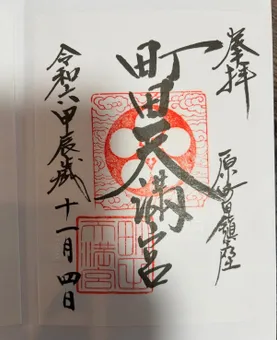 奉拝
原町田鎮座
町田天満宮
令和六甲辰歳 十一月四日
町田天満宮